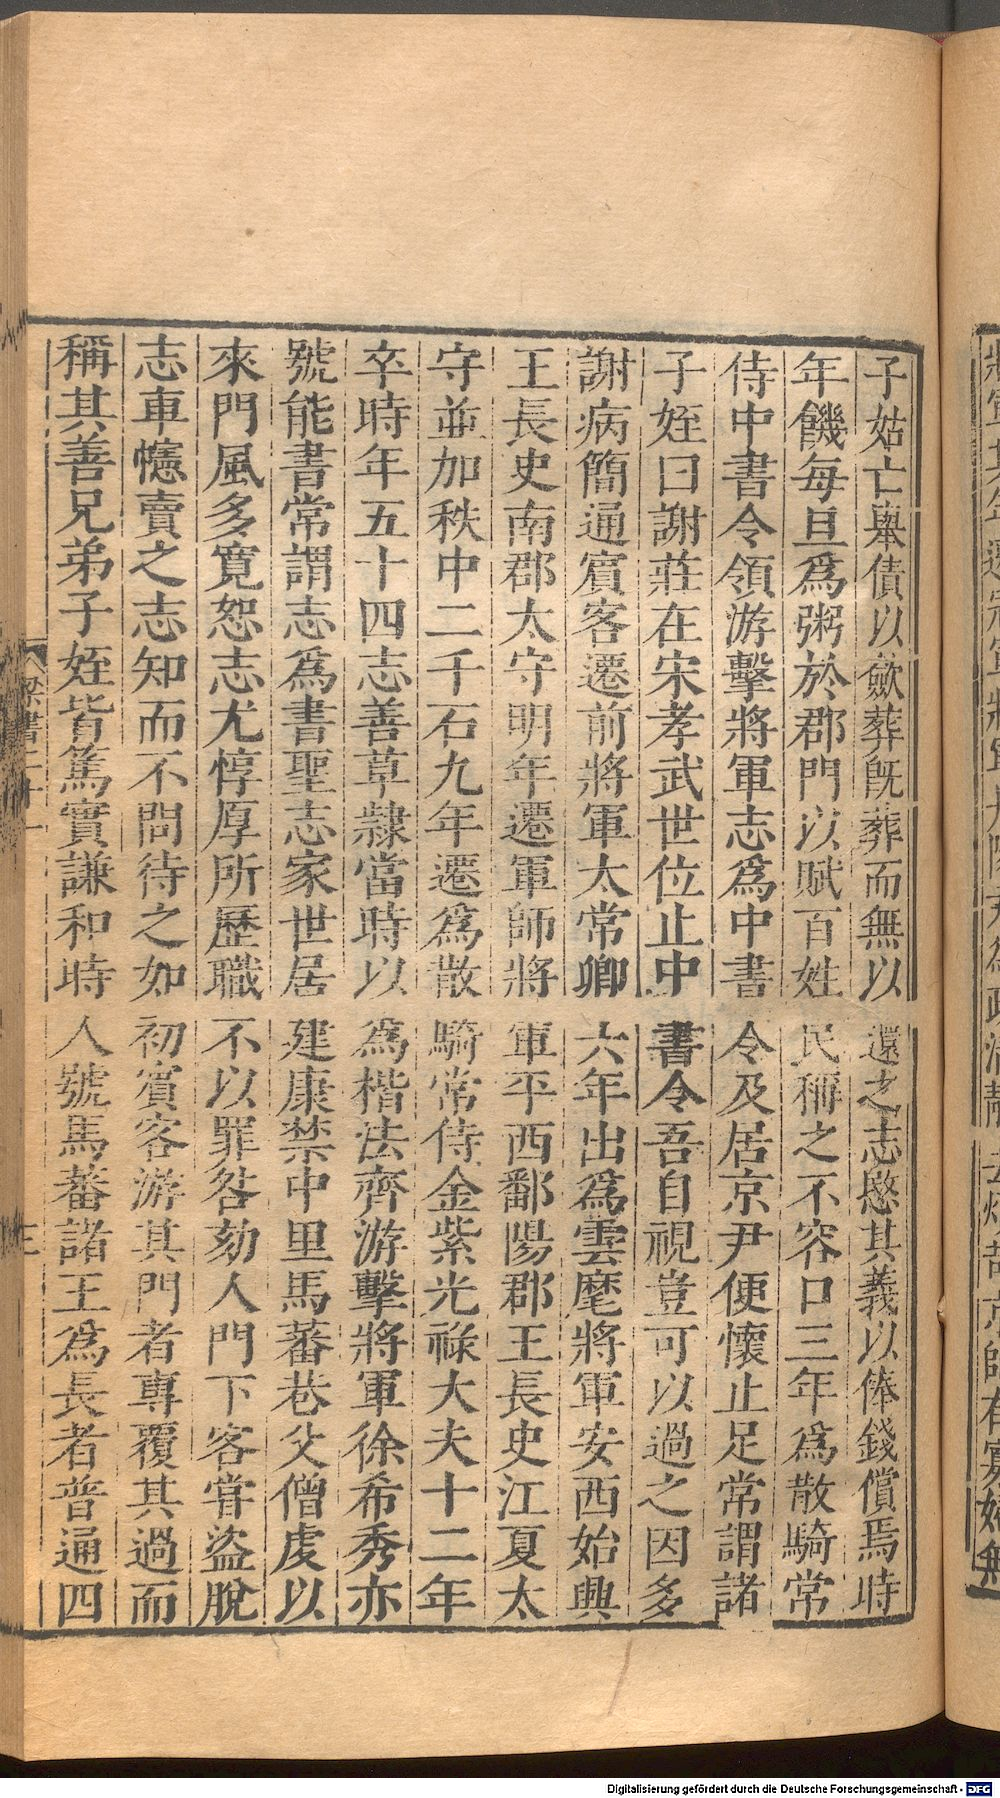 子姑亡舉債以斂葬旣葬而無以還之志愍其義以俸錢償焉時
年饑每旦爲粥於郡門以賦百姓民稱之不容口三年爲散騎常
侍中書令領游擊將軍志爲中書令及居京尹便懷止足常謂諸
子姪曰謝莊在宋孝武世位止中書令吾自視豈可以過之因多
謝病簡通賓客遷前將軍太常卿六年出爲雲麾將軍安西始興
王長史南郡太守明年遷軍師將軍平西鄱陽郡王長史江夏太
守並加秩中二千石九年遷爲散騎常侍金紫光祿大夫十二年
卒時年五十四志善草隸當時以爲楷法齊游擊將軍徐希秀亦
號能書常謂志爲書聖志家世居建康禁中里馬蕃巷父僧虔以
來門風多寬恕志尤惇厚所歷職不以罪咎劾人門下客嘗盜脫
志車幰賣之志知而不問待之如初賓客游其門者專覆其過而
稱其善兄弟子姪皆篤實謙和時人號馬蕃諸王爲長者普通四
梁書二十一
三
Digitalisierung gefördert durch die Deutsche Forschungsgemeinschaft - DFG